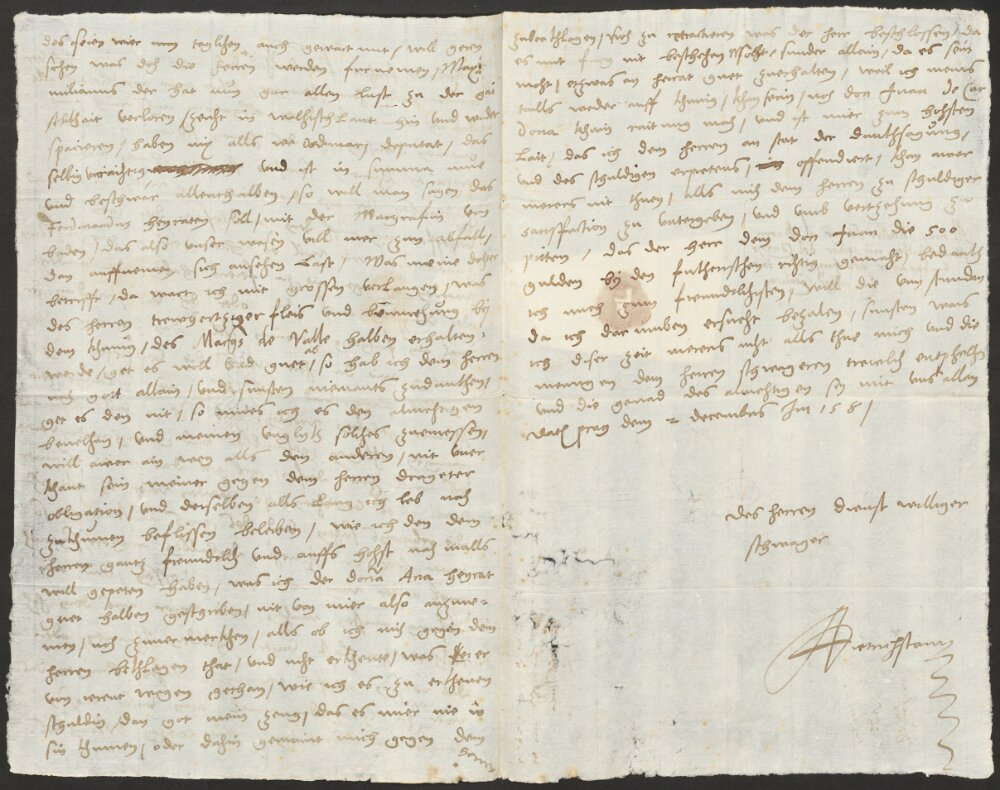 des osien wier nun teglichen auch gewart mit, will gern
sehen was doch die herren werden fürnemen, Maxi
milianus der hat nun gar allen lust zu der gai
stlikhait verloren, zeicht in walhisch lant hin und wider
spacieren, haben nix alls ir ordinari deputat, das
selbig und ist in summa
und beschwar allenthalben, so will man sagen das
Ferdinandus heyraten soll, mit der Margräfin von
baden, das also unser wesen vill mer zum abfall,
dan auffnemen sich ansehen last, Was meine dohter
betrifft, da wart ich mit grossen verlangen, was
des herren trewhertziger fleis und bemuehung bej
dem khunig, des Margs de Valle halben erhalten
werde, get es woll und guet ab, so hab ich dem herren
nach gott allain, und sunsten niemants zudankhen,
get es den nit, so mues ich es den almechtigen
bevelhen, und meinen unglykh solches zuemessen,
will awer ain weg alls den anderen, nit
khant sein meiner gegen dem herren
obligation, und derselben alls lang ich leb nach
zukhumen beflissen beleiben, wie ich den dem
herren gantz freundtlich und auffs hohst nach malls
will gepeten haben, was ich der Dona Ana heyrat
guet halben geschriben, nit von mier also anzune-
men, noch zuvermerkhen, alls ob ich mich gegen dem
herren beklagen thet, und nicht erkhente, was er
von wegen gethan, wie ich es zu erkhenen
schuldig, dan got mein zeug, das es mier nie in
sin khumen, oder dahin gemaint mich gegen dem
herren
zubekhlagen, noch zu was der herr beschlossen, da
es mit fueg nit beschehen mocht, sunder allain, da es sein
mecht, etwas an heirat guet zuerhalten, weil ich meins
taills weder auff khunig, khaiserin, noch don Juan de Car
dona khain raitung mach, und ist mier zum hohsten
lait, das ich dem herren an stat der dankhsagung,
und des schuldigen erpietens, offendiert, khan awer
merers nit thuen, alls mich dem herren zu schuldiger
satisfaction zu untergeben, und umb verzeihung zu
pitten, das der herr dem don Juan die 500
gulden bej den fukherischen richtig gemacht, bedankh
ich mich zum freundtlichisten, will die von stunden
da ich darumben ersuecht bezalen, sunsten wais
ich diser zeit merers nicht alls thue mich und die
meinigen dem herren schwageren trewlich entpfelhen
und die genad des almechtigen sej mit uns allen
Datum prag den 2 decembris Im 1581
des herren dienst williger
schwager
ADietrichstain